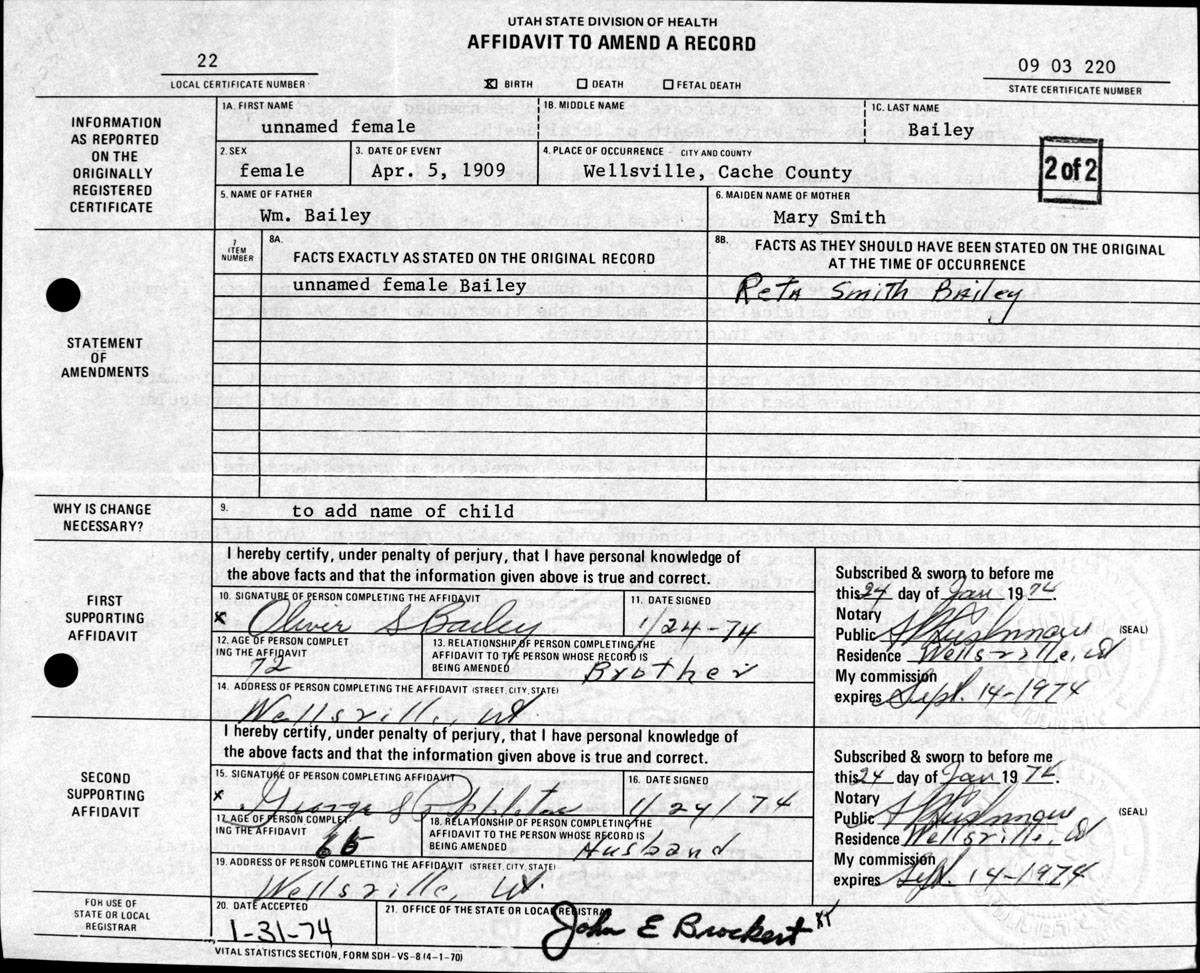 UTAH STATE DIVISION OF HEALTH
AFFIDAVIT TO AMEND A RECORD
22
LOCAL CERTIFICATE NUMBER
X BIRTH DEATH FETAL DEATH
09 03 220
STATE CERTIFICATE NUMBER
INFORMATION
AS REPORTED
ON THE
ORIGINALLY
REGISTERED
CERTIFICATE
1A. FIRST NAME
unnamed female
1B. MIDDLE NAME
1C. LAST NAME
Bailey
2. SEX
female
3. DATE OF EVENT
Apr. 5, 1909
4. PLACE OF OCCURRENCE - CITY AND COUNTY
Wellsville, Cache County
2 of 2
5. NAME OF FATHER
Wm. Bailey
6. MAIDEN NAME OF MOTHER
Mary Smith
STATEMENT
OF
AMENDMENTS
7
ITEM
NUMBER
8A.
FACTS EXACTLY AS STATED ON THE ORIGINAL RECORD
8B.
FACTS AS THEY SHOULD HAVE BEEN STATED ON THE ORIGINAL
AT THE TIME OF OCCURRENCE
unnamed female Bailey
Reta Smith Bailey
WHY IS CHANGE
NECESSARY?
9.
to add name of child
FIRST
SUPPORTING
AFFIDAVIT
I hereby certify, under penalty of perjury, that I have personal knowledge of
the above facts and that the information given above is true and correct.
10. SIGNATURE OF PERSON COMPLETING THE AFFIDAVIT
x Oliver S Bailey
11. DATE SIGNED
1/24-74
12. AGE OF PERSON COMPLET
ING THE AFFIDAVIT
72
13. RELATIONSHIP OF PERSON COMPLETING THE
AFFIDAVIT TO THE PERSON WHOSE RECORD IS
BEING AMENDED
Brother
14. ADDRESS OF PERSON COMPLETING THE AFFIDAVIT (STREET, CITY, STATE)
Wellsville, Ut.
Subscribed & sworn to before me
this 24 day of Jan 19 74.
Notary
Public
(SEAL)
Residence Wellsville, Ut
My commission
expires Sept. 14-1974
SECOND
SUPPORTING
AFFIDAVIT
I hereby certify, under penalty of perjury, that I have personal knowledge of
the above facts and that the information given above is true and correct.
15. SIGNATURE OF PERSON COMPLETING AFFIDAVIT
x George S Appleton
16. DATE SIGNED
1/24/74
17. AGE OF PERSON COMPLET
ING THE AFFIDAVIT
65
18. RELATIONSHIP OF PERSON COMPLETING THE
AFFIDAVIT TO THE PERSON WHOSE RECORD IS
BEING AMENDED
Husband
19. ADDRESS OF PERSON COMPLETING THE AFFIDAVIT (STREET, CITY, STATE)
Wellsville, Ut.
Subscribed & sworn to before me
this 24 day of Jan 19 74.
Notary
Public
(SEAL)
Residence Wellsville, Ut
My commission
expires Sept. 14-1974
FOR USE OF
STATE OR LOCAL
REGISTRAR
20. DATE ACCEPTED
1-31-74
21. OFFICE OF THE STATE OR LOCAL REGISTRAR
John E Brockert
VITAL STATISTICS SECTION, FORM SDH-VS-8 (4-1-70)